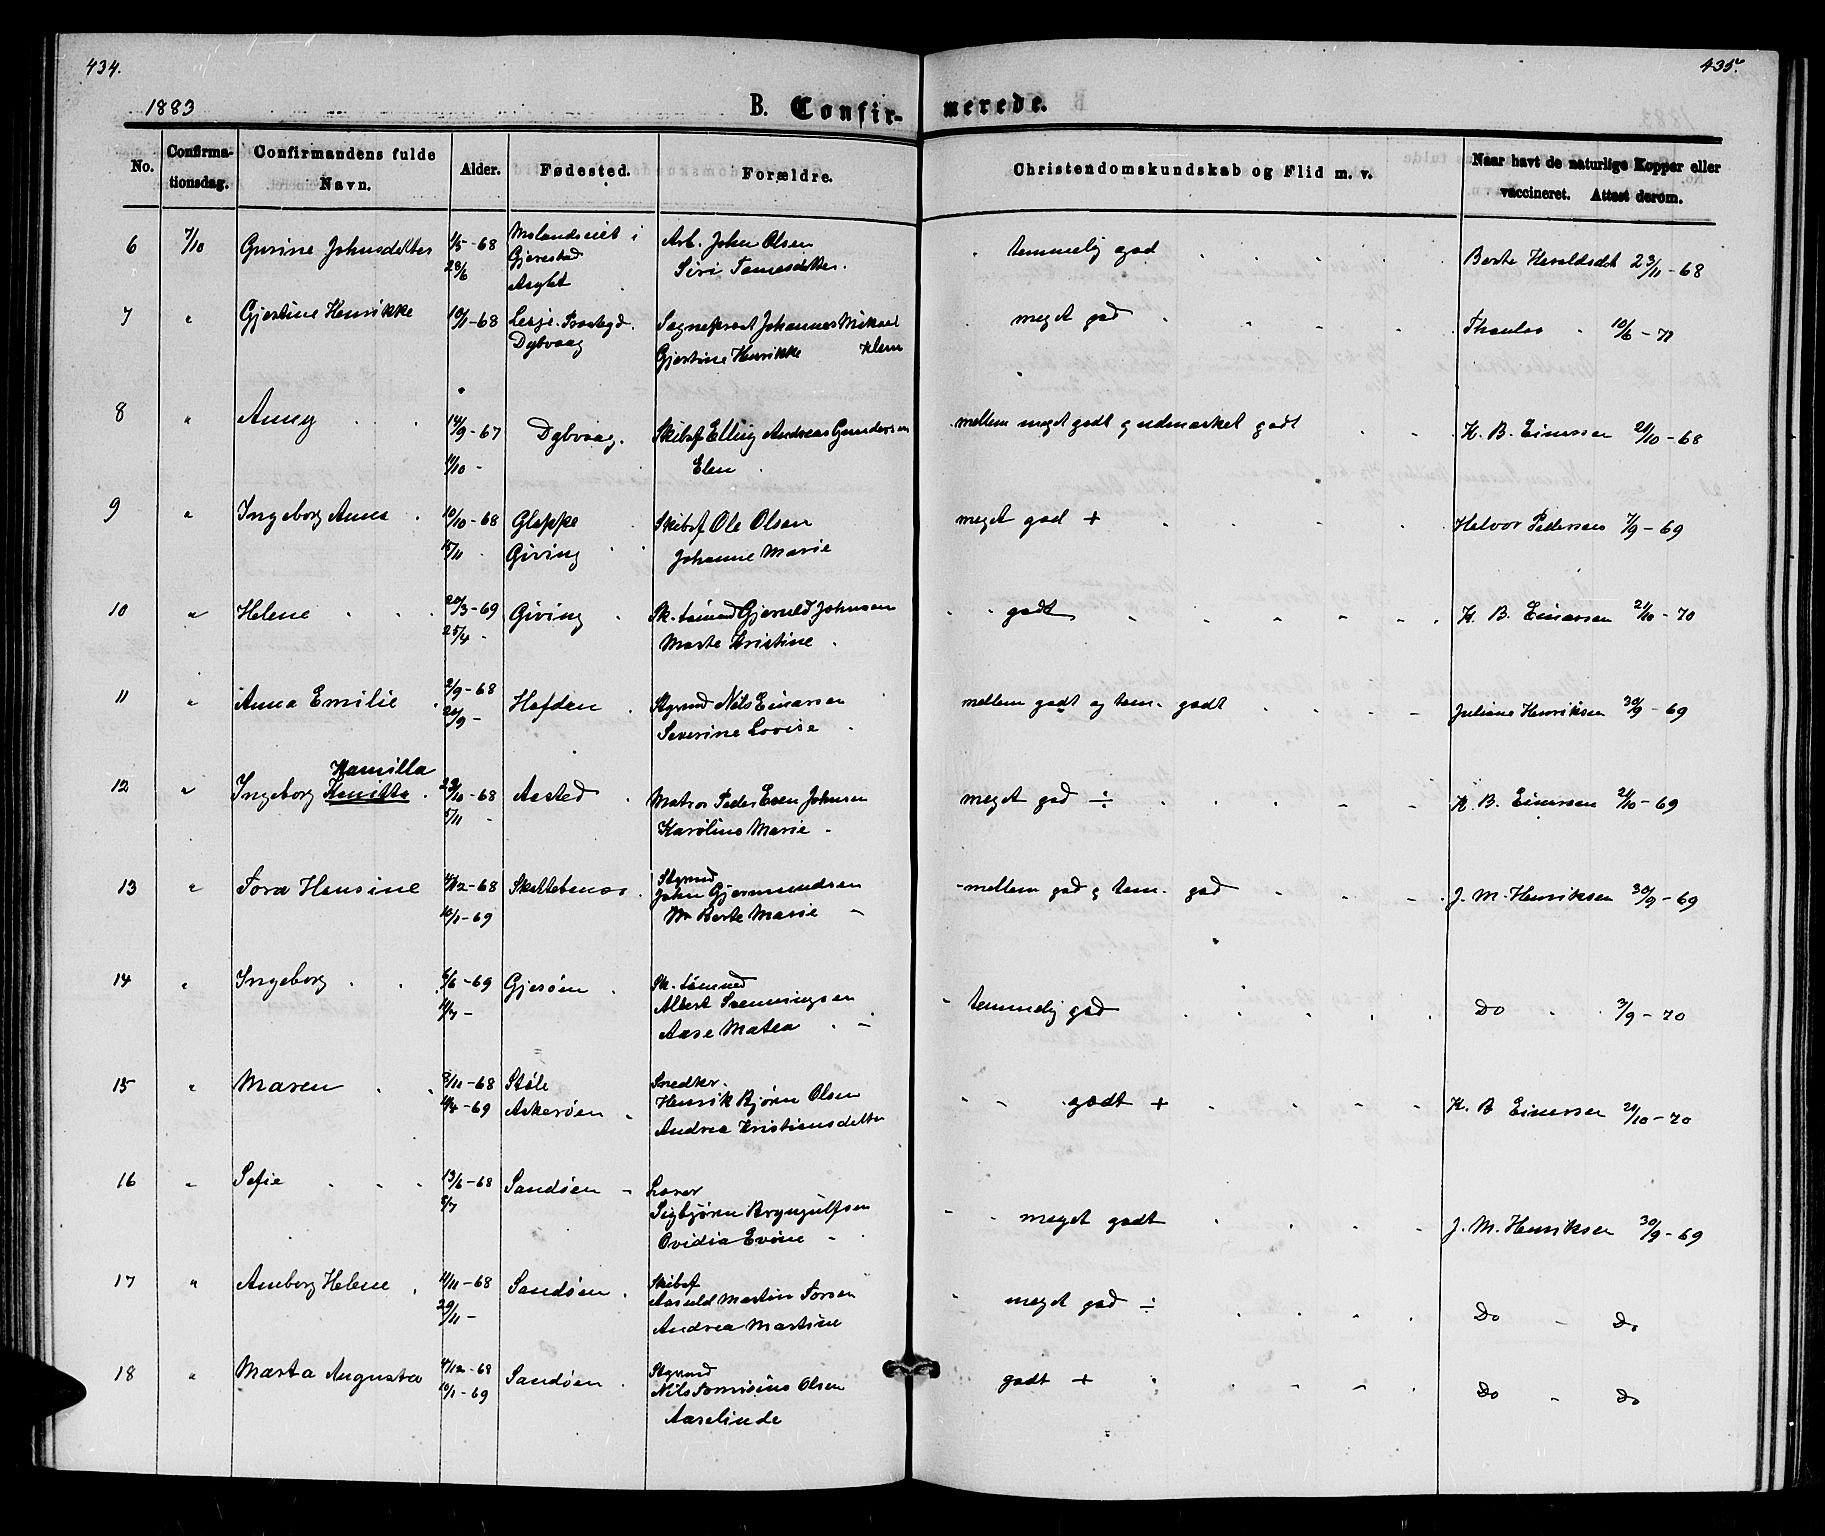 434.
435.
1883
B. Confir-
merede.
No.
Confirma-
tionsdag.
Confirmandens fulde
Navn.
Alder.
Fødested.
Forældre.
Christendomskundskab og Flid m. v.
Naar havt de naturlige Kopper eller
vaccineret. Attest derom.
6 7/10 Gurine Johnsdatter 1/5-68 Molandseiet i Arb. John Olsen temmelig god Berte Haraldsdt 23/11-68
28/6 Gjerestad Siri Tomasdatter.
7 " Gjertine Henrikke 10/11-68 Lesje Prostegd. Sogneprest Johannes Mikael meget god 10/6-71
Dybvaag Gjertine Henrikke Klem
8 " Anny 14/9-67 Dybvaag. Skibsf Elling Andreas Gundersen mellem meget godt g udmærket godt K. B. Einersen 21/10-68
11/10 - Elen
9 " Ingeborg Anna 10/10-68 Gloppe Skibsf Ole Olsen meget god + Halvor Pedersen 7/9-69
15/11 Giving Johanne Marie
10 " Helene 20/3-69 Giving Sk. tømmd Gjeruld Johnsen godt K. B. Einersen 21/10-70
25/4 - Marte Kristine
11 " Anna Emilie 2/9-68 Hafden Styrmd Nils Einarsen mellem godt og tem. godt Juliane Henriksen 30/9-69
20/9 - Severine Lovise
Hamilla
12 " Ingeborg 29/10-68 Aasted Matros Peder Even Johnsen meget god ÷ K. B. Einersen 21/10-69
5/11 - Karoline Marie -
Styrmd
13 " Tora Hansine 4/12-68 Skottebenæs John Gjermundsen mellem god g tem. god J. M. Henriksen 30/9-69
10/1-69 Berte Marie -
Sk. tømmd
14 " Ingeborg 6/6-69 Gjesøen Albert Svenningsen temmelig god Do 3/9-70
11/7- Aase Matea -
15 " Maren 8/11-68 Støle Snedker.
4/4-69 Askerøen Henrik Bjørn Olsen godt + K. B Einersen 21/10-70
Andrea Kristiansdatter
16 " Sofie 13/6-68 Sandøen - Lærer
8/7 Sigbjørn Brynjulfsen meget godt J. M. Henriksen 30/9-69
Ovidia Evine -
17 " Anborg Helene 11/11-68 Sandøen Skibsf
29/11- Aanuld Martin Torsen meget god ÷ Do - Do
Andrea Martine
18 " Marta Augusta 4/12-68 Sandøen Styrmd
10/1-69 Nils Tomisius Olsen godt + Do - Do
Aaselinde